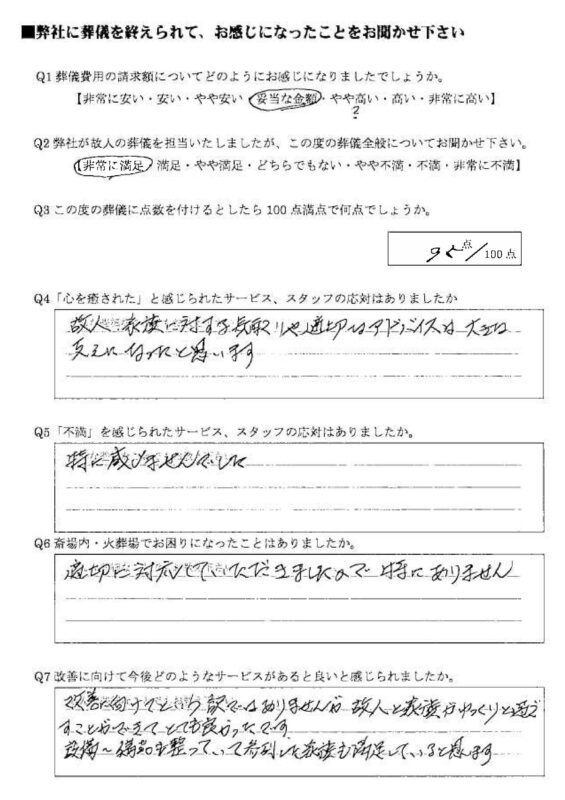 ■弊社に葬儀を終えられて、お感じになったことをお聞かせ下さい
Q1 葬儀費用の請求額についてどのようにお感じになりましたでしょうか。
【非常に安い・安い・やや安い・妥当な金額・やや高い・高い・非常に高い】
?
Q2 弊社が故人の葬儀を担当いたしましたが、この度の葬儀全般についてお聞かせ下さい。
【非常に満足・満足・やや満足・どちらでもない・やや不満・不満・非常に不満】
Q3 この度の葬儀に点数を付けるとしたら100点満点で何点でしょうか。
95点/100点
Q4「心を癒された」と感じられたサービス、スタッフの応対はありましたか
故人、家族に対する気配りや適切なアドバイスは大きな
支えになったと思います
Q5「不満」を感じられたサービス、スタッフの応対はありましたか。
特に感じませんでした
Q6 斎場内・火葬場でお困りになったことはありましたか。
適切に対応していただきましたので特にありません
Q7 改善に向けて今後どのようなサービスがあると良いと感じられましたか。
改善に向けてという訳ではありませんが故人と家族がゆっくりと過ご
すことができてとても良かったです
設備や備品も整っていて参列した家族も満足していると思います